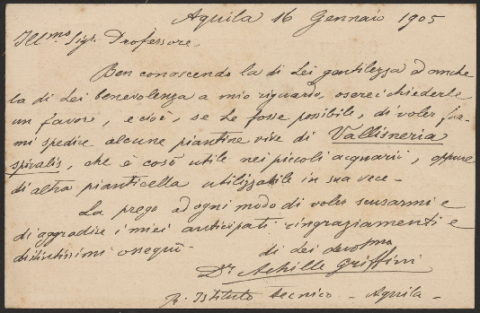 Aquila 16 Gennaio 1905
Ill.mo Sigr. Professore.
Ben conoscendo la di Lei gentilezza ed anche
la di Lei benevolenza a mio riguardo, oserei chiederle
un favore, e cioè, se Le fosse possibile, di voler far-
mi spedire alcune piantine vive di Vallisneria
spiralis, che è così utile nei piccoli acquarii, oppure
di altra pianticella utilizzabile in sua vece.
La prego ad ogni modo di voler scusarmi e
di aggradire i miei anticipati ringraziamenti e
distintissimi ossequi.
di Lei devotmo
Dr. Achille Griffini
R. Istituto tecnico - Aquila -